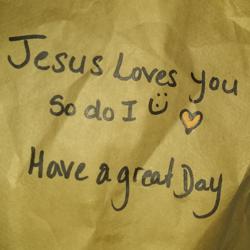 Jesus Loves you
So do I
Have a great Day